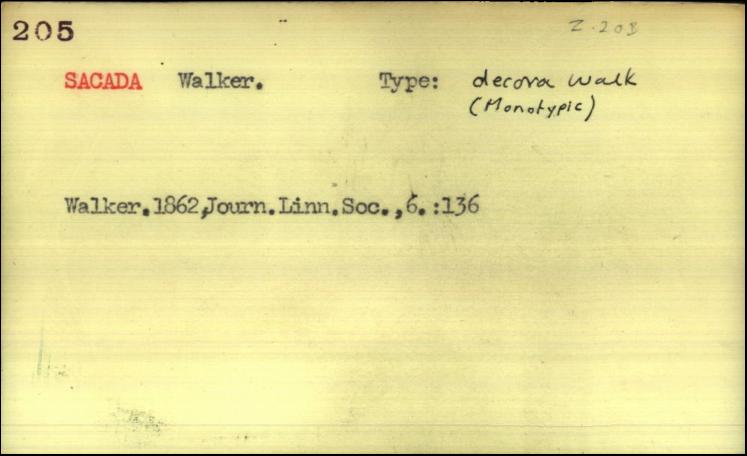 205 Z.20B
SACADA Walker. Type: decora Walk
(Monotypic)
Walker.1862,Journ.Linn.Soc.,6.:136